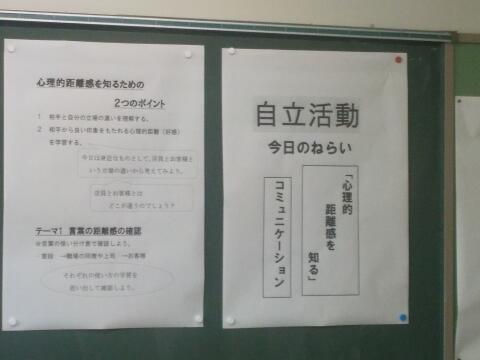 心理的距離感を知るための
2つのポイント
1 相手と自分の立場の違いを理解する。
2 相手から良い印象をもたれる心理的距離（好感）
を学習する。
今日は身近なものとして、店員とお客様と
いう立場の違いから考えてみよう。
店員とお客様とは
どこが違うのでしょう？
テーマ1 言葉の距離感の確認
※言葉の使い分け表で確認しよう。
・普段 →職場の同僚や上司 →お客様
それぞれの使い方の学習を
思い出して確認しよう。
自立活動
今日のねらい
「心理的
距離感を
知る」
コミュニケーション